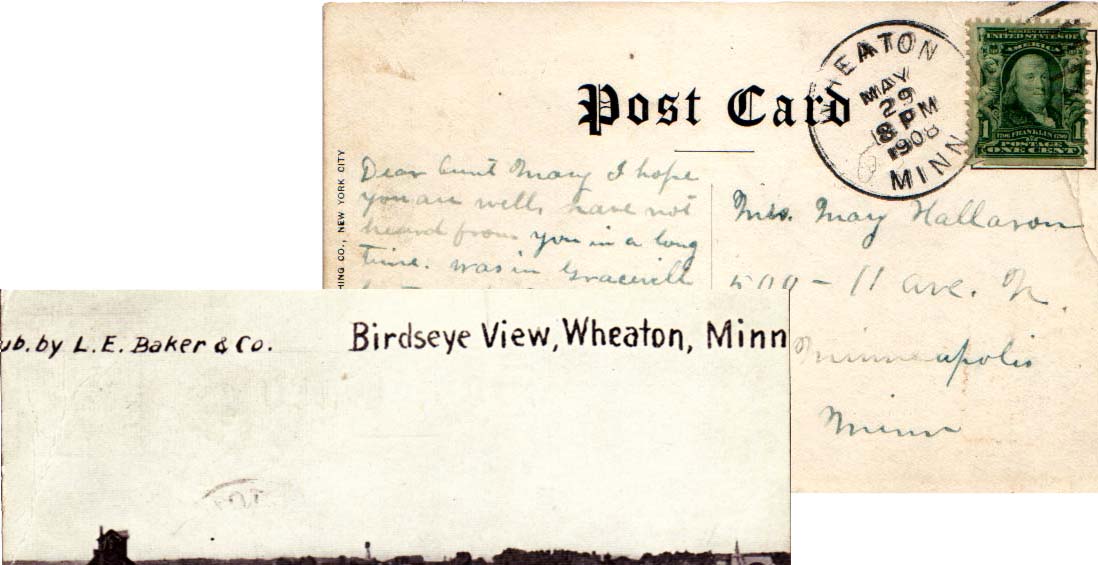 Post Card
WHEATON
MAY
29
8 PM
1908
MINN
SERIES 1902
UNITED STATES OF
AMERICA
1 1706 FRANKLIN 1790 1
POSTAGE
ONE CENT
HING CO., NEW YORK CITY
Dear Aunt Mary I hope
you are well, have not
heard from you in a long
time. was in Graceville
Mrs. May Hallaron
500 - 11 ave. N.
Minneapolis
Minn
ub. by L. E. Baker & Co.
Birdseye View, Wheaton, Minn